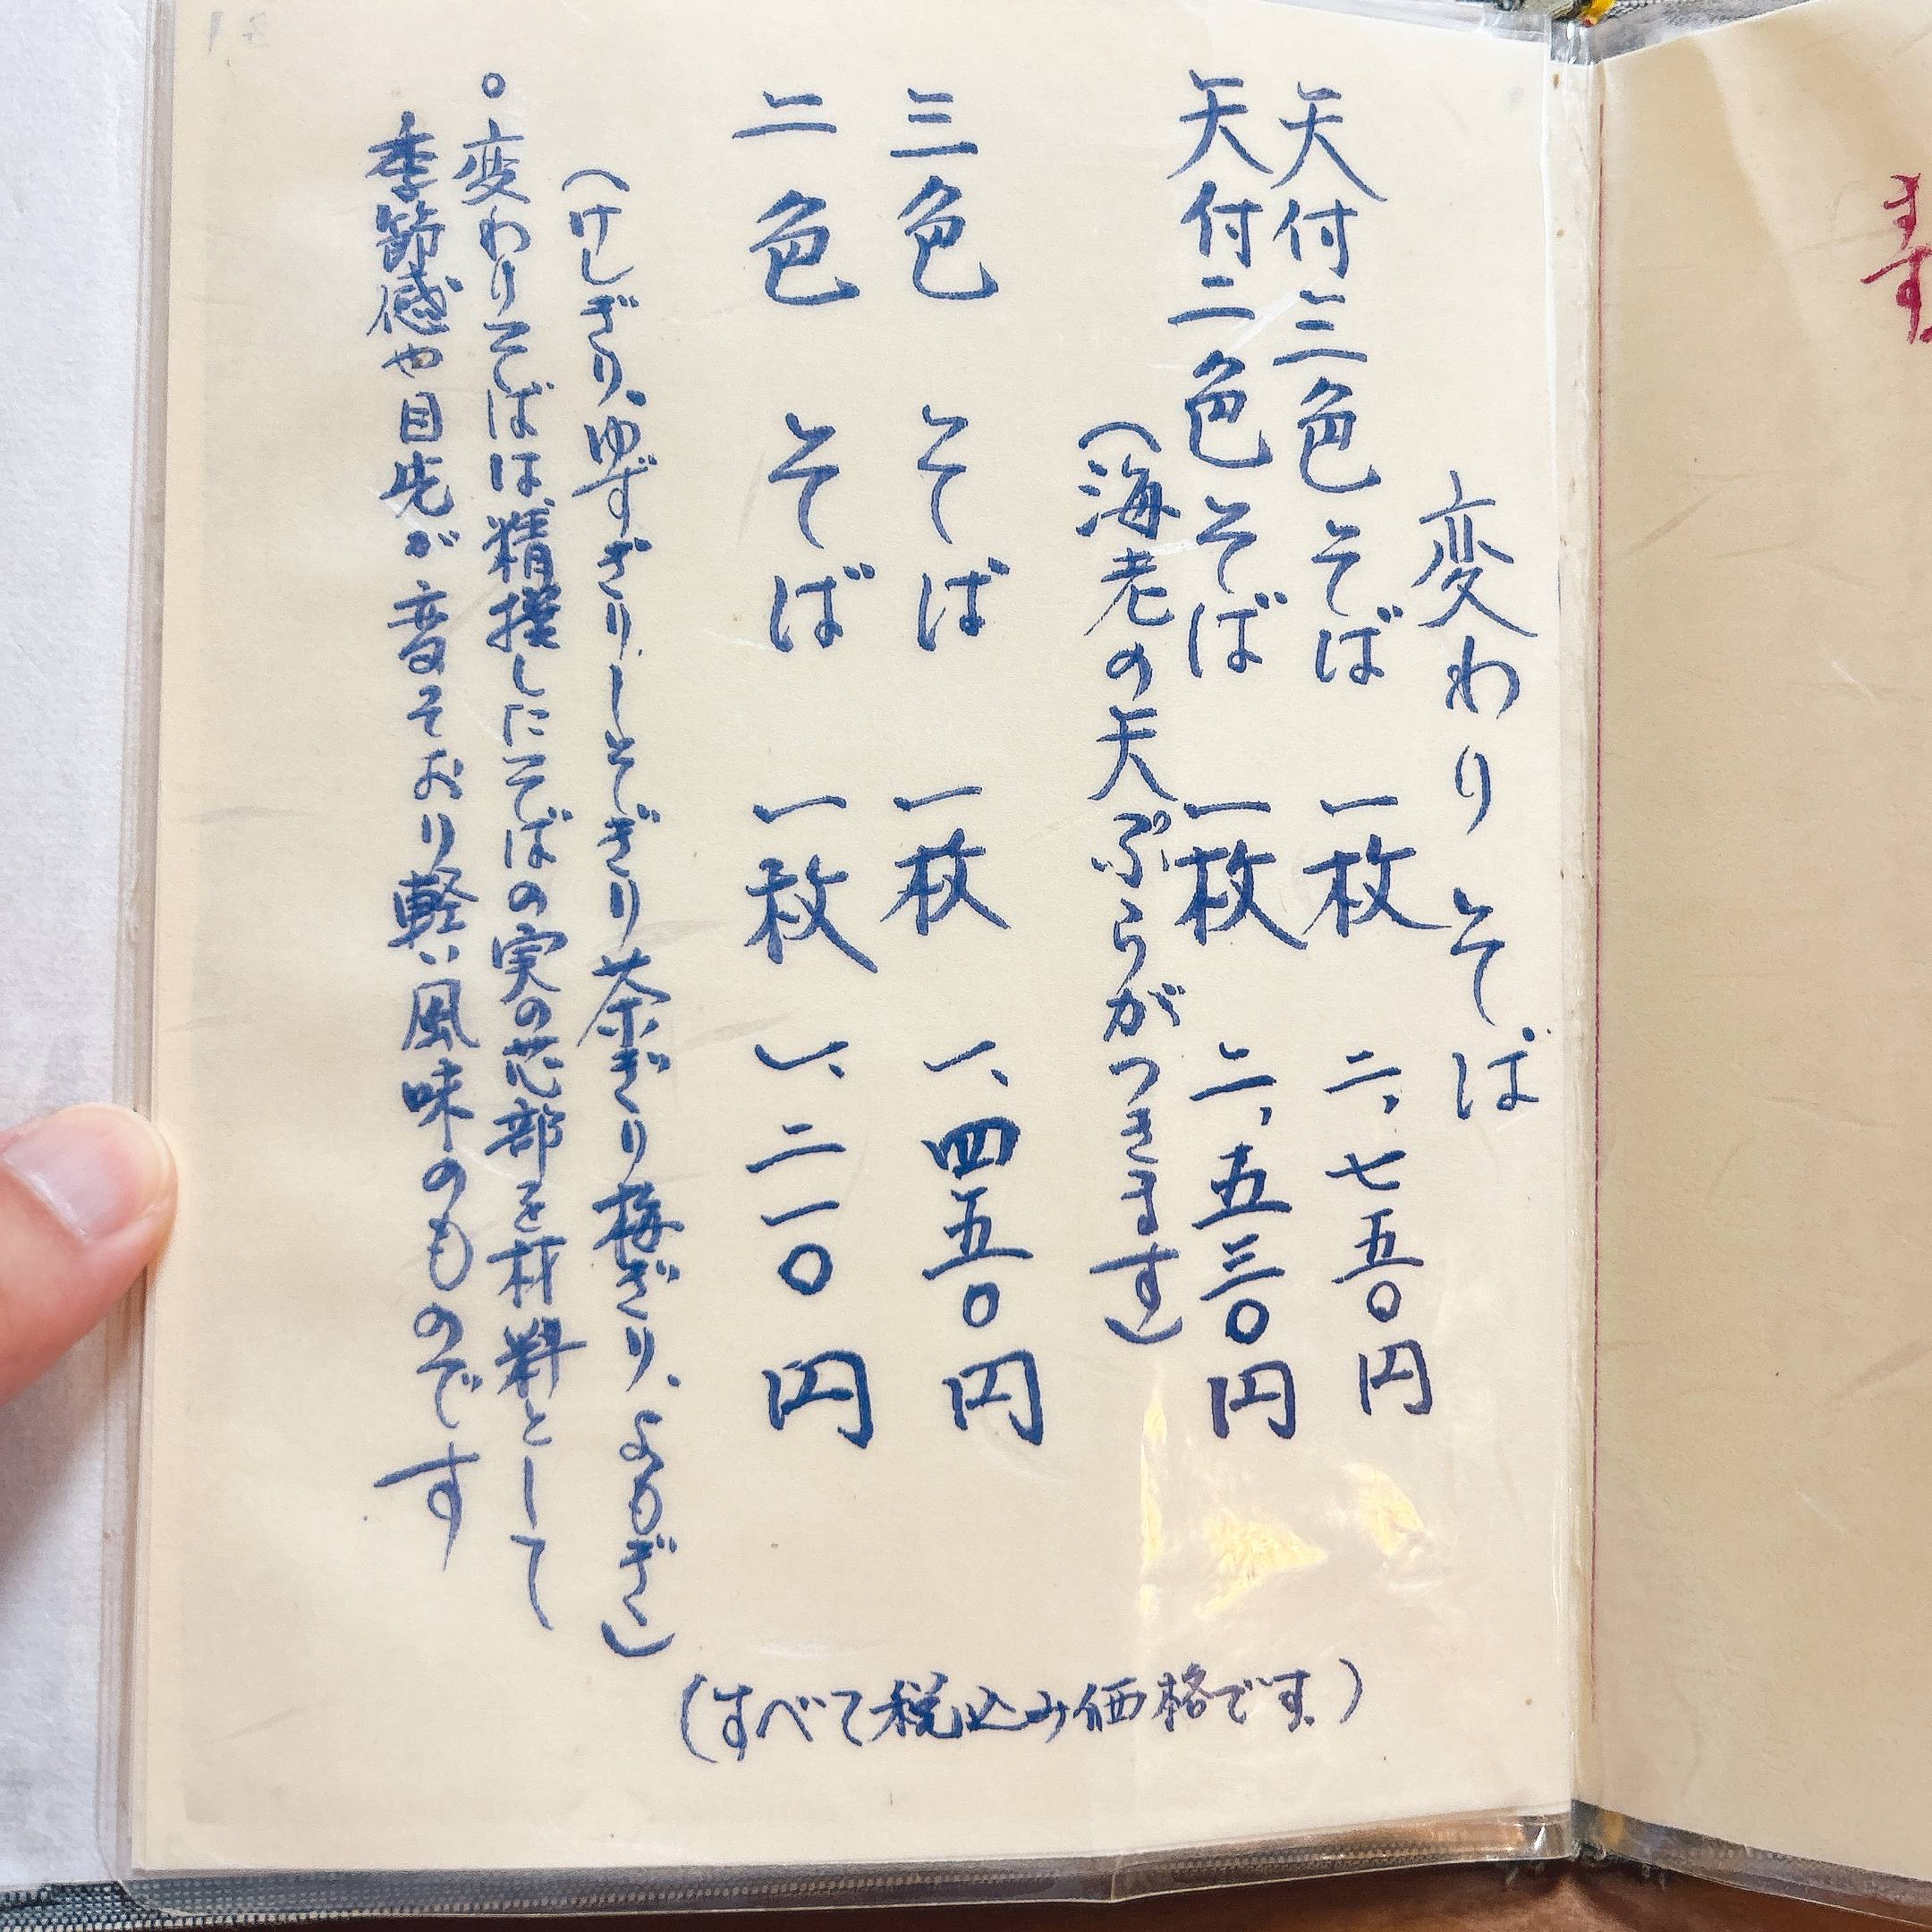 ます。
変わりそば
天付三色そば 一枚 二、七五〇円
天付二色そば 一枚 二、五三〇円
(海老の天ぷらがつきます)
三色 そば 一枚 一、四五〇円
二色 そば 一枚 一、二一〇円
(けしぎり、ゆずぎり、しそぎり茶ぎり梅ぎり、よもぎ)
○変わりそばは、精撰しにそばの実の芯部を材料として
季節感や目先が変そおり軽い風味のものです
(すべて税込み価格です。)